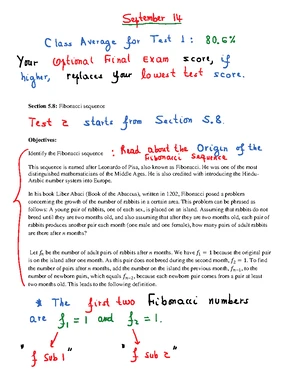 September 14
Class Average for Test 1 : 80.6%
Your Optional Final Exam score, if
higher, replaces your lowest test score.
Section 5.8: Fibonacci sequence
Test 2 starts from Section 5.8.
Objectives:
Identify the Fibonacci sequence : Read about the Origin of the
Fibonacci Sequence
This sequence is named after Leonardo of Pisa, also known as Fibonacci. He was one of the most
distinguished mathematicians of the Middle Ages. He is also credited with introducing the Hindu-
Arabic number system into Europe.
In his book Liber Abaci (Book of the Abacus), written in 1202, Fibonacci posed a problem
concerning the growth of the number of rabbits in a certain area. This problem can be phrased as
follows: A young pair of rabbits, one of each sex, is placed on an island. Assuming that rabbits do not
breed until they are two months old, and also assuming that after they are two months old, each pair of
rabbits produces another pair each month (one male and one female), how many pairs of adult rabbits
are there after n months?
Let fₙ be the number of adult pairs of rabbits after n months. We have f₁ = 1 because the original pair
is on the island after one month. As this pair does not breed during the second month, f₂ = 1. To find
the number of pairs after n months, add the number on the island the previous month, fₙ₋₁, to the
number of newborn pairs, which equals fₙ₋₂, because each newborn pair comes from a pair at least
two months old. This leads to the following definition.
* The first two Fibonacci numbers
are f₁ = 1 and f₂ = 1.
"f sub 1" "f sub 2"